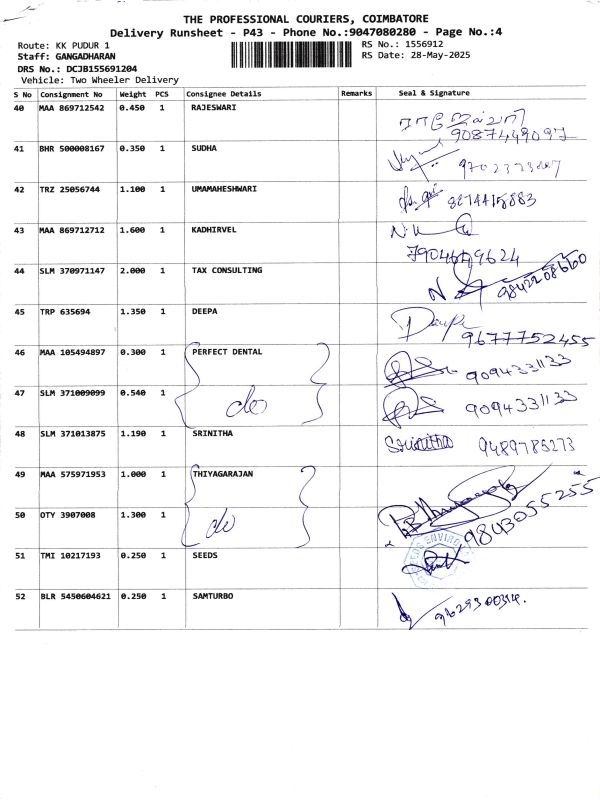 THE PROFESSIONAL COURIERS, COIMBATORE
Delivery Runsheet - P43 - Phone No.:9047080280 - Page No.:4
Route: KK PUDUR 1 RS No.: 1556912
Staff: GANGADHARAN RS Date: 28-May-2025
DRS No.: DCJB155691204
Vehicle: Two Wheeler Delivery
S No Consignment No Weight PCS Consignee Details Remarks Seal & Signature
40 MAA 869712542 0.450 1 RAJESWARI
9087449097
41 BHR 500008167 0.350 1 SUDHA
42 TRZ 25056744 1.100 1 UMAMAHESHWARI
8874415883
43 MAA 869712712 1.600 1 KADHIRVEL
44 SLM 370971147 2.000 1 TAX CONSULTING
9842208660
45 TRP 635694 1.350 1 DEEPA
9677752455
46 MAA 105494897 0.300 1 PERFECT DENTAL
9094331133
47 SLM 371009099 0.540 1 do
9094331133
48 SLM 371013875 1.190 1 SRINITHA Srinitha 9489785273
49 MAA 575971953 1.000 1 THIYAGARAJAN
50 OTY 3907008 1.300 1 do 9843055255
51 TMI 10217193 0.250 1 SEEDS
52 BLR 5450604621 0.250 1 SAMTURBO